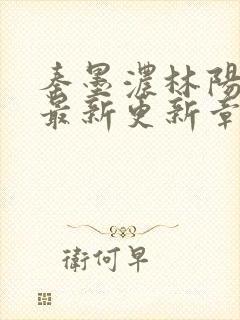 秦墨濃林陽
最新更新章
衛何早